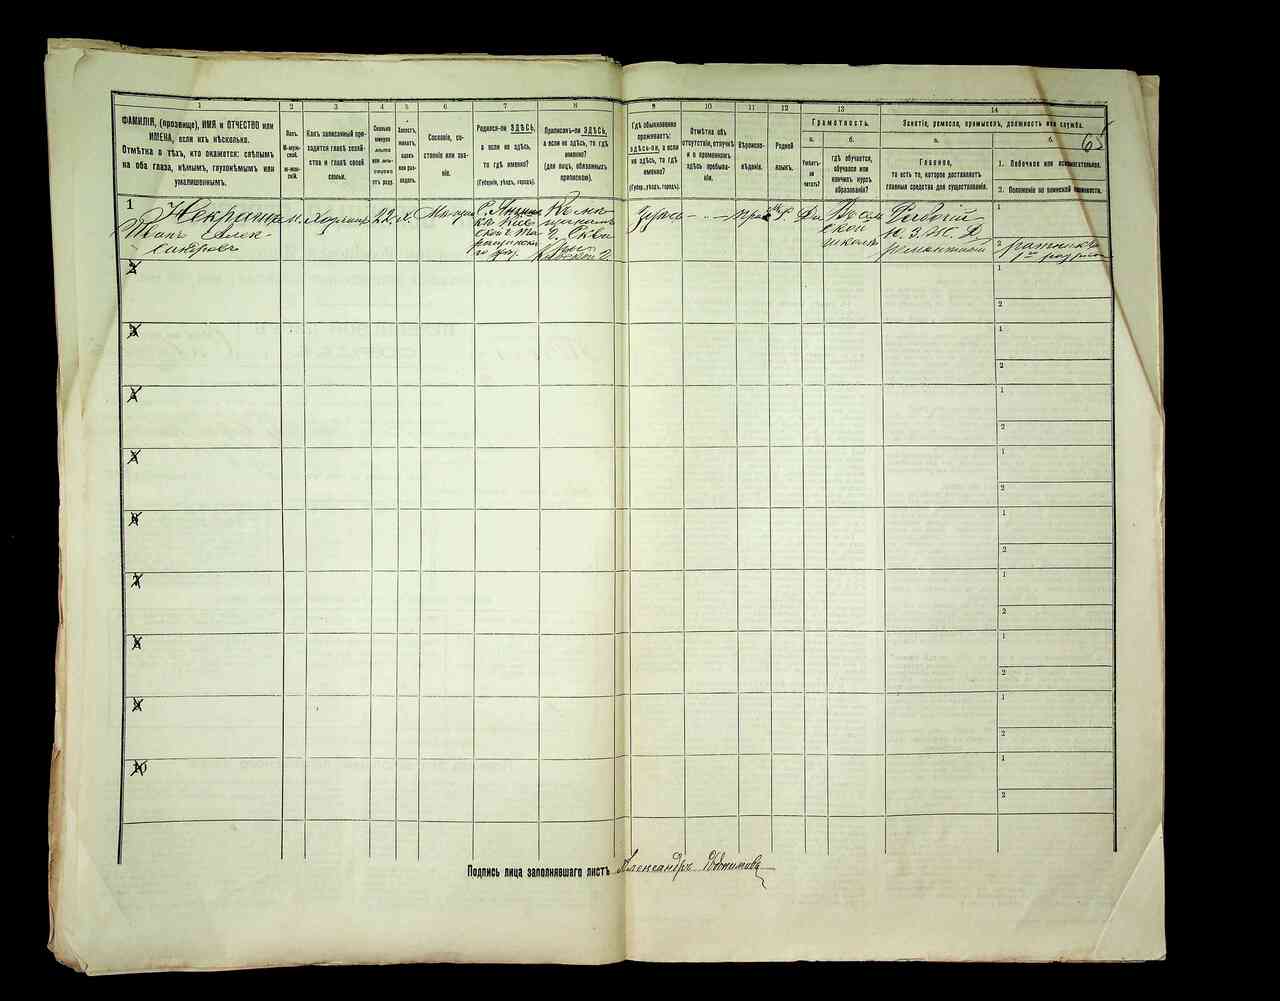 65
1 2 3 4 5 6 7 8 9 10 11 12 13 14
ФАМИЛІЯ, (прозвище), ИМЯ и ОТЧЕСТВО или
ИМЕНА, если ихъ нѣсколько.
Отмѣтка о тѣхъ, кто окажется: слѣпымъ
на оба глаза, нѣмымъ, глухонѣмымъ или
умалишеннымъ.
Полъ.
М-муж-
ской.
ж-жен-
скій.
Какъ записанный при-
ходится главѣ хозяй-
ства и главѣ своей
семьи.
Сколько
минуло
лѣтъ
или мѣ-
сяцевъ
отъ роду.
Холостъ,
женатъ,
вдовъ
или раз-
веденъ.
Сословіе, со-
стояніе или зва-
ніе.
Родился-ли ЗДѢСЬ,
а если не здѣсь,
то гдѣ именно?
(Губернія, уѣздъ, городъ).
Приписанъ-ли ЗДѢСЬ,
а если не здѣсь, то гдѣ
именно?
(для лицъ, обязанныхъ
припискою).
Гдѣ обыкновенно
проживаетъ:
здѣсь-ли, а если
не здѣсь, то гдѣ
именно?
(Губер., уѣздъ, городъ).
Отмѣтка объ
отсутствіи, отлучкѣ
и о временномъ
здѣсь пребыва-
ніи.
Вѣроиспо-
вѣданіе.
Родной
языкъ.
Грамотность.
а.
Умѣетъ-
ли
читать?
б.
гдѣ обучается,
обучался или
кончилъ курсъ
образованія?
Занятіе, ремесло, промыселъ, должность или служба.
а.
Главное,
то есть то, которое доставляетъ
главныя средства для существованія.
б.
1. Побочное или вспомогательное.
2. Положеніе по воинской повинности.
1
Некраша
Иванъ Алек-
сандровъ
м. 22 х.
Здѣсь - .. - Да
школѣ
Рабочій
Ю. З. Ж. Д.
ремонтный
1
2 ратникъ
1го разряда
2 1
2
3 1
2
4 1
2
5 1
2
6 1
2
7 1
2
8 1
2
9 1
2
10 1
2
Подпись лица заполнявшаго листъ Александръ